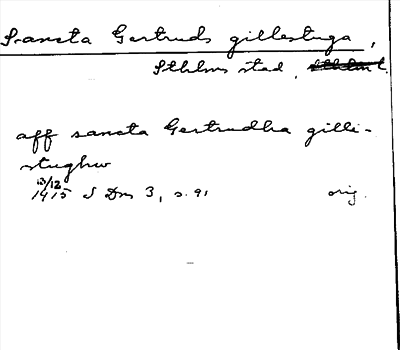 Sancta Gertruds gillestuga,
Sthlms stad,
aff sancta Gertrudha gilli-
stughw
13/12
1415 S Dn 3, s. 91 orig.